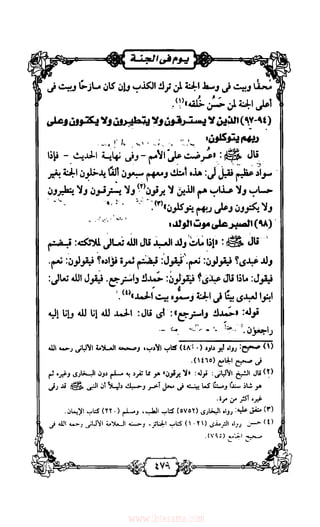 يوم فى الجنة
محقًا وبيت فى وسط الجنة لمن ترك الكذب وإن كان مازحًا وبيت فى
أعلى الجنة لمن حَسُن خلقه»(١).
(٩٤-٩٧) الذين لا يسترقون ولا يتطيرون ولا يكتوون وعلى
ربهم يتوكلون:
قال ﷺ: «عُرضت علىَّ الأمم - وفى نهاية الحديث - فإذا
سوادٌ عظيم فقيل لى: هذه أمتك ومعهم سبعون ألفًا يدخلون الجنة بغير
حساب ولا عذاب هم الذين لا يرقون(٢) ولا يسترقون ولا يتطيرون
ولا يكتوون وعلى ربهم يتوكلون»(٣).
(٩٨) الصبر على موت الولد:
قال ﷺ: «إذا مات ولد العبد قال الله تعالى لملائكته: قبضتم
ولد عبدى؟ فيقولون: نعم. فيقول: قبضتم ثمرة فؤاده؟ فيقولون: نعم.
فيقول: ماذا قال عبدى؟ فيقولون: حمدك واسترجع. فيقول الله تعالى:
ابنوا لعبدى بيتًا فى الجنة وسموه بيت الحمد»(٤).
قوله: «حمدك واسترجع»: أى قال: الحمد لله إنا لله وإنا إليه
راجعون.
(١) صحيح: رواه أبو داود (٤٨٠٠) كتاب الأدب، وصححه العلامة الألبانى رحمه الله
فى صحيح الجامع (١٤٦٥).
(٢) قال الشيخ الألبانى: قوله: «لا يرقون» هو مما تفرد به مسلم دون البخارى وغيره ثم
هو شاذ سندًا ومتنًا كما بينته فى محل آخر وحسبك دليلاً أن النبى ﷺ قد رقى
غيره أكثر من مرة.
(٣) متفق عليه: رواه البخارى (٥٧٥٢) كتاب الطب، ومسلم (٢٢٠) كتاب الإيمان.
(٤) حسن: رواه الترمذى (١٠٢١) كتاب الجنائز، وحسنه العلامة الألبانى رحمه الله فى
صحيح الجامع (٧٩٥).
٤٧٩
www.ibtesama.com